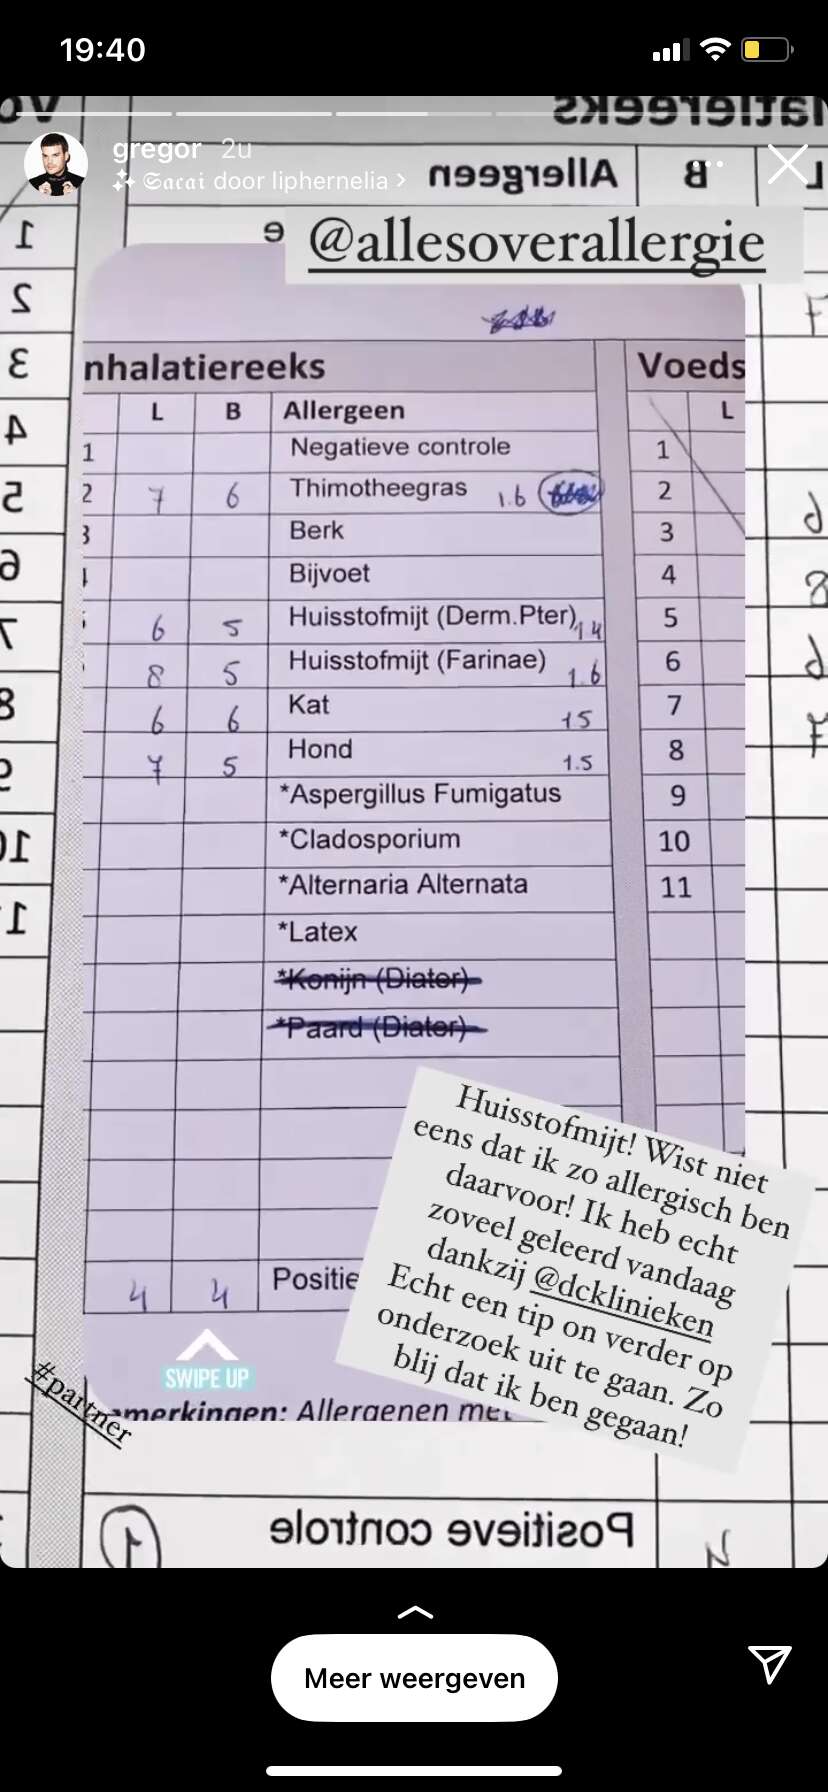 19:40
gregor 2u
𝔖𝔞𝔠𝔞𝔦 door liphernelia >
Allergeen B L
@allesoverallergie
nhalatiereeks Voeds
L B Allergeen L
1 Negatieve controle 1
2 7 6 Thimotheegras 1.6 2
3 Berk 3
Bijvoet 4
6 5 Huisstofmijt (Derm.Pter) 14 5
8 5 Huisstofmijt (Farinae) 1.6 6
6 6 Kat 15 7
7 5 Hond 1.5 8
*Aspergillus Fumigatus 9
*Cladosporium 10
*Alternaria Alternata 11
*Latex
*Konijn (Diater)
*Paard (Diater)
4 4 Positie
Huisstofmijt! Wist niet
eens dat ik zo allergisch ben
daarvoor! Ik heb echt
zoveel geleerd vandaag
dankzij @dcklinieken
Echt een tip on verder op
onderzoek uit te gaan. Zo
blij dat ik ben gegaan!
SWIPE UP
#partner
merkingen: Allergenen met
Positieve controle
Meer weergeven